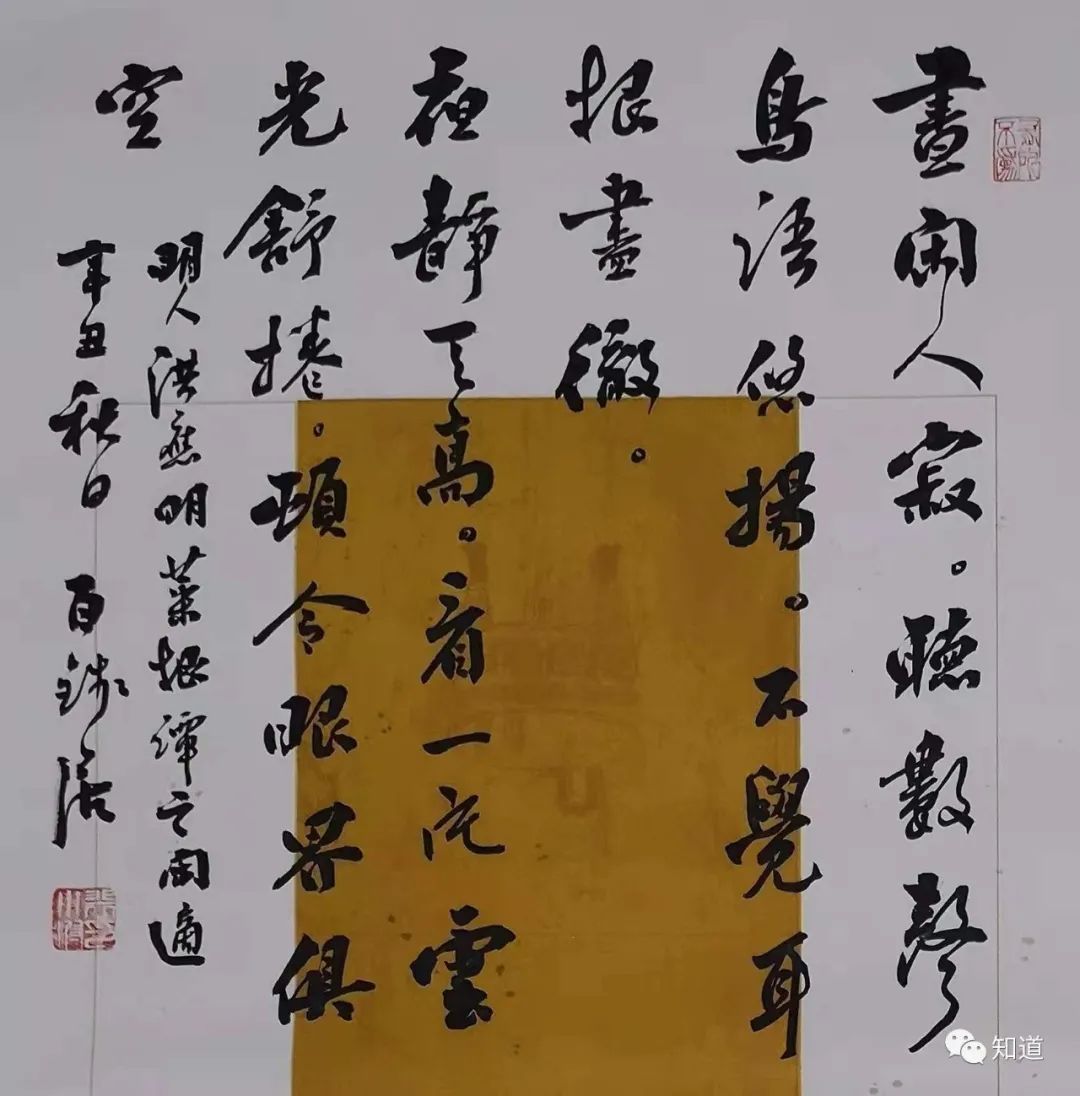 晝閑人寂。聽數聲
鳥語悠揚。不覺耳
根盡徹。
夜靜天高。看一片雲
光舒捲。頓令眼界俱
空
明人洪應明菜根譚之閑適
辛丑秋日 百錬居
知道